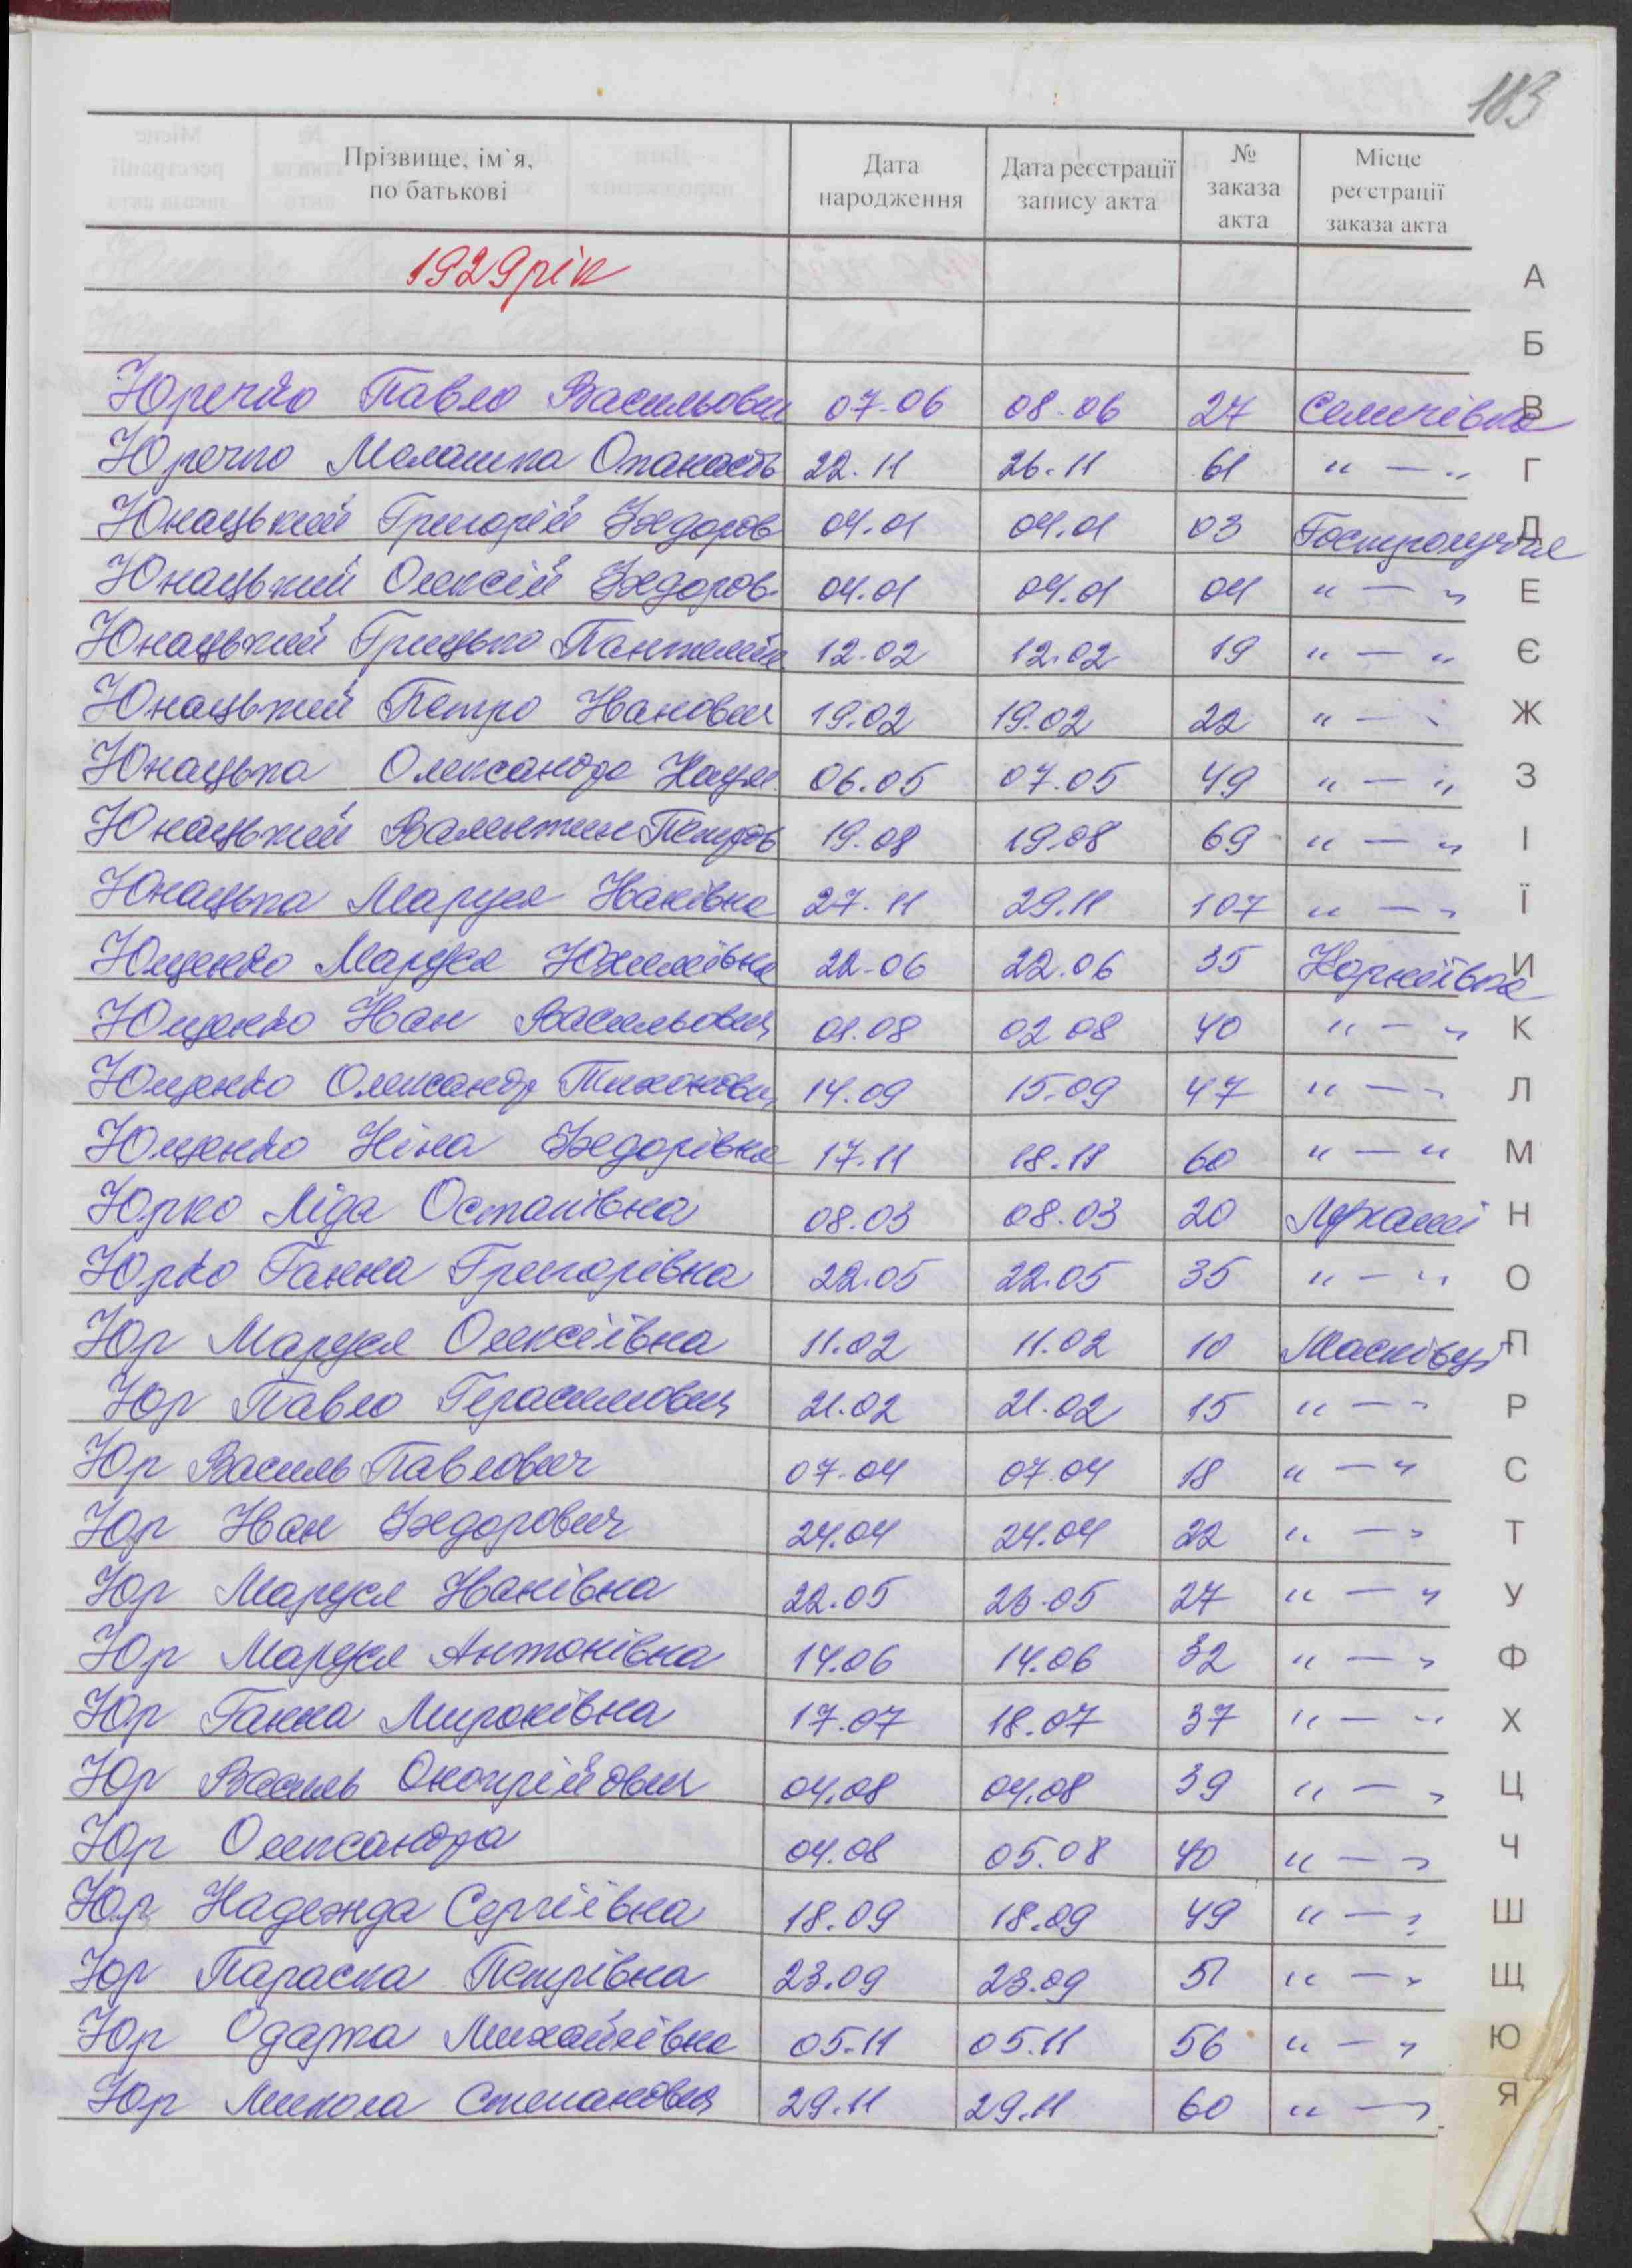 183
Прізвище, ім`я, по батькові Дата народження Дата реєстрації запису акта № заказа акта Місце реєстрації заказа акта
1929 рік
Юречко Павло Васильович 07.06 08.06 27 Семичівка
Юречко Мелашка Опанасів 22.11 26.11 61 " — "
Юнацький Григорій Федоров 04.01 04.01 03 Гостролуччя
Юнацький Олексій Федоров. 04.01 04.01 04 " — "
Юнацький Грицько Пантелей 12.02 12.02 19 " — "
Юнацький Петро Іванович 19.02 19.02 22 " — "
Юнацька Олександра Наум. 06.05 07.05 49 " — "
Юнацький Валентин Петров 19.08 19.08 69 " — "
Юнацька Маруся Іванівна 27.11 29.11 107 " — "
Ющенко Маруся Юхимівна 22.06 22.06 35 Корніївка
Ющенко Іван Васильович 01.08 02 08 40 " — "
Ющенко Олександр Тихонович 14.09 15.09 47 " — "
Ющенко Ніна Федорівна 17.11 18.11 60 " — "
Юрко Ліда Остапівна 08.03 08.03 20
Юрко Ганна Григорівна 22.05 22.05 35 " — "
Юр Маруся Олексіївна 11.02 11.02 10 Масківці
Юр Павло Герасимович 21.02 21.02 15 " — "
Юр Василь Павлович 07.04 07.04 18 " — "
Юр Іван Федорович 24.04 24.04 22 " — "
Юр Маруся Іванівна 22.05 23.05 27 " — "
Юр Маруся Антонівна 14.06 14.06 32 " — "
Юр Ганна Миронівна 17.07 18.07 37 " — "
Юр Василь Онопрійович 04.08 04.08 39 " — "
Юр Олександра 04.08 05.08 40 " — "
Юр Надежда Сергіївна 18.09 18.09 49 " — "
Юр Параска Петрівна 23.09 23.09 51 " — "
Юр Одарка Михайлівна 05.11 05.11 56 " — "
Юр Микола Степанович 29.11 29.11 60 " — "
А
Б
В
Г
Д
Е
Є
Ж
З
І
Ї
И
К
Л
М
Н
О
П
Р
С
Т
У
Ф
Х
Ц
Ч
Ш
Щ
Ю
Я